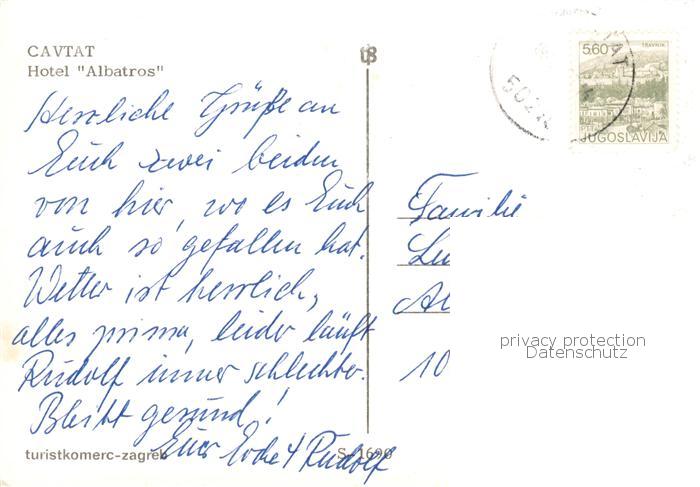 CAVTAT
Hotel "Albatros"
Herrliche Grüße an
Euch zwei beiden
von hier, wo es Euch
auch so gefallen hat.
Wetter ist herrlich,
alles prima, leider läuft
Rudolf immer schlechter.
Bleibt gesund!
Eure + Rudolf
turistkomerc-zagreb
S-1690
5,60
TRAVNIK
JUGOSLAVIJA
Familie
10
privacy protection
Datenschutz